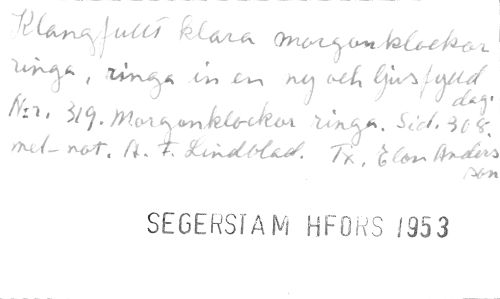 Klangfullt klara morgonklockor
ringa, ringa in en ny och ljusfylld
dag.
N:r. 319. Morgonklockor ringa. Sid. 308.
mel-not. A. F. Lindblad. Tx. Elon Anders
son
SEGERSTAM HFORS 1953